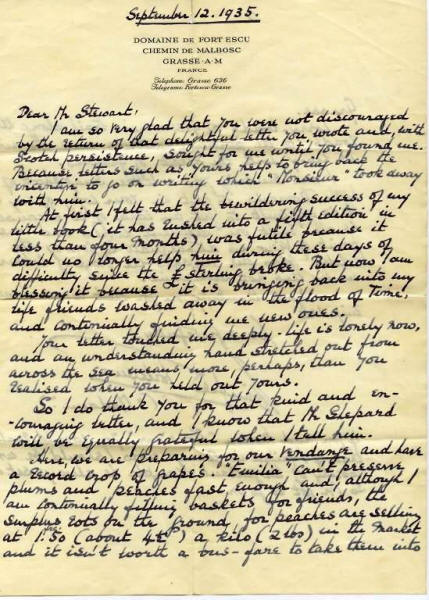 September 12. 1935.
DOMAINE DE FORT ESCU
CHEMIN DE MALBOSC
GRASSE · A-M
FRANCE
Telephone: Grasse 636
Telegrams: Fortescu-Grasse
Dear Mr Stewart,
I am so very glad that you were not discouraged
by the return of that delightful letter you wrote and, with
Scotch persistence, sought for me until you found me.
Because letters such as yours help to bring back the
incentive to go on writing which "Monsieur" took away
with him.
At first I felt that the bewildering success of my
little book (it has rushed into a fifth edition in
less than four months), was futile because it
could no longer help him during these days of
difficulty since the £ sterling broke. But now I am
blessing it because it is bringing back into my
life friends washed away in the flood of Time,
and continually finding me new ones.
Your letter touched me deeply. Life is lonely now,
and an understanding hand stretched out from
across the sea means more, perhaps, than you
realised when you held out yours.
So I do thank you for that kind and en-
-couraging letter, and I know that Mr Shepard
will be equally grateful when I tell him.
Here, we are preparing for our Vendange and have
a record crop of grapes. "Emilia" can't preserve
plums and peaches fast enough and, although I
am continually filling baskets for friends, the
surplus rots on the ground, for peaches are selling
at 1.50 (about 4d) a kilo (2 lbs) in the market
and it isn't worth a bus-fare to take them into